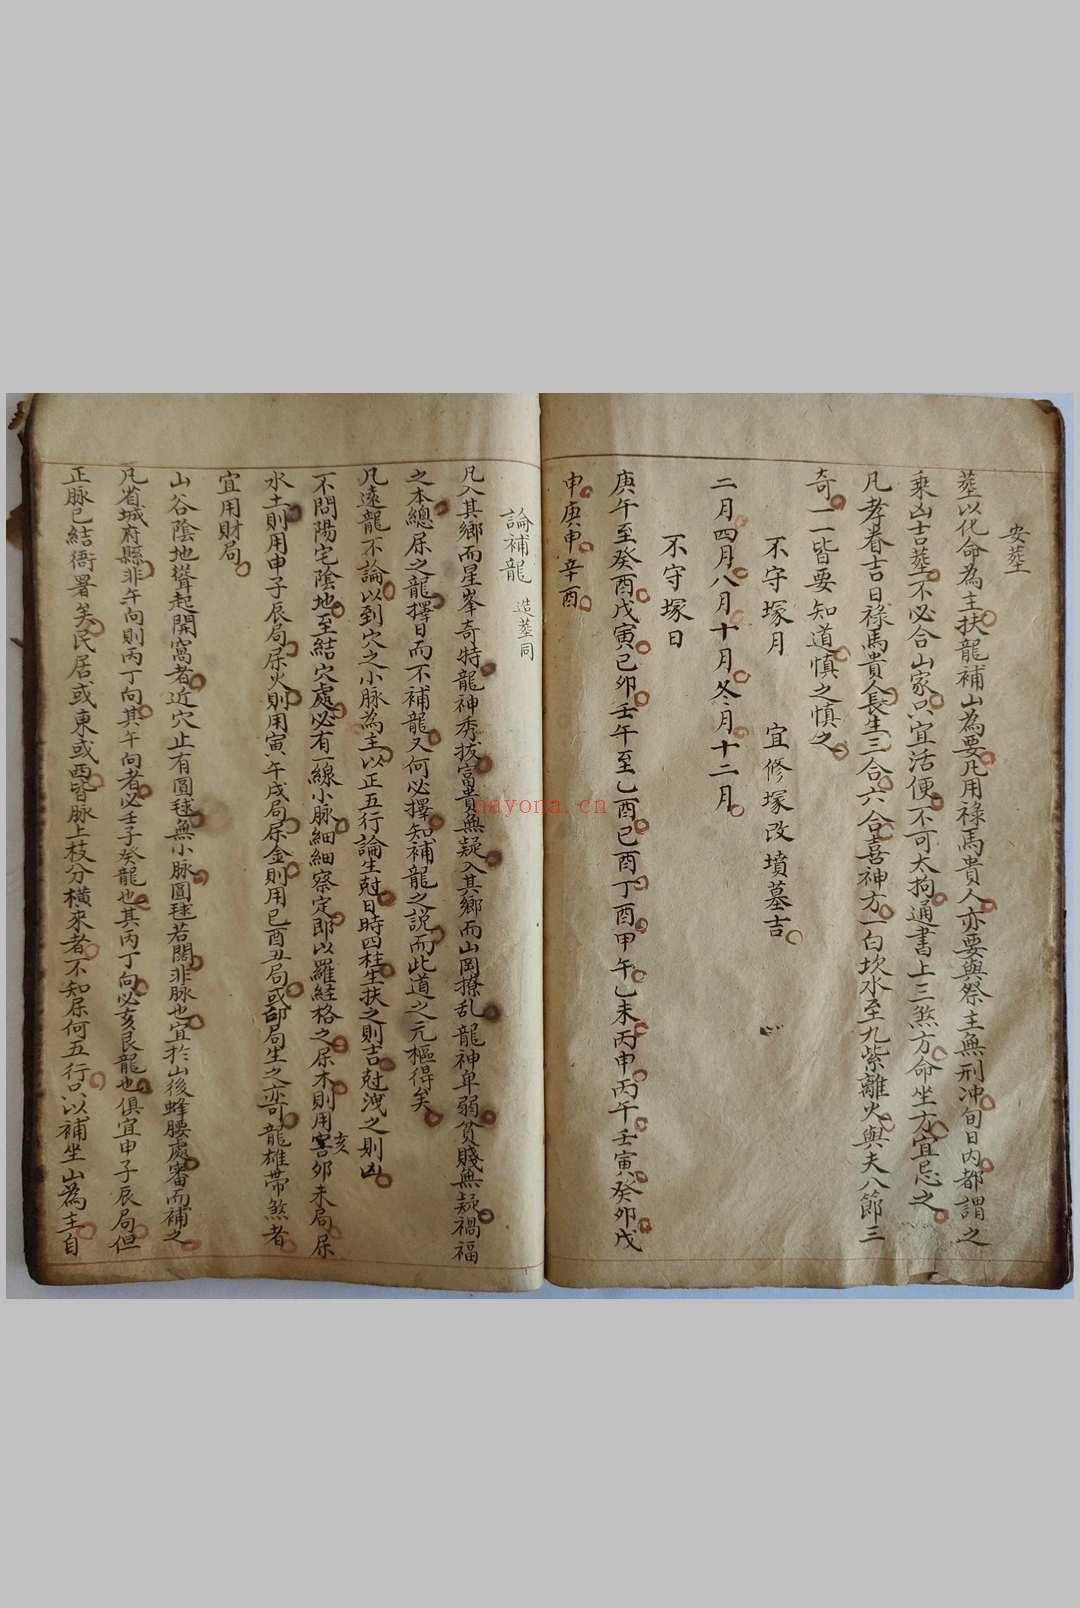 安葬
葬以化命為主扶龍補山為要凡用祿馬貴人亦要與祭主無刑冲旬日內都謂之
乘凶吉葬不必合山家只宜活便不可太拘通書上三煞方命坐方宜忌之
凡孝眷吉日祿馬貴人長生三合六合喜神方一白坎水至九紫離火與夫八節三
奇一一皆要知道慎之慎之
不守塚月 宜修塚改墳墓吉
二月四月八月十月冬月十二月
不守塚日
庚午至癸酉戊寅己卯壬午至乙酉己酉丁酉甲午乙未丙申丙午壬寅癸卯戊
申庚申辛酉
論補龍 造葬同
凡入其鄉而星峯奇特龍神秀拔富貴無疑入其鄉而山岡撩乱龍神卑弱貧賤無疑禍福
之本總屬之龍擇日而不補龍又何必擇知補龍之說而此道之元樞得矣
凡遠龍不論以到穴之小脉為主以正五行論生尅日時四柱生扶之則吉尅洩之則凶
不問陽宅陰地至結穴處必有一線小脉細細察定即以羅経格之屬木則用亥卯未局屬
水土則用申子辰局屬火則用寅午戌局屬金則用巳酉丑局或卽局生之亦可龍雄帶煞者
宜用財局
山谷陰地聳起開窩者近穴止有圓毬無小脉圓毬若闊非脉也宜扵山後蜂腰處審而補之
凡省城府縣非午向則丙丁向其午向者必壬子癸龍也其丙丁向必亥艮龍也俱宜申子辰局但
正脉已結衙署矣民居或東或西皆脉上枝分橫來者不知屬何五行只以補坐山為主自
nayona.cn